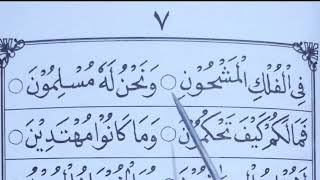 ٧
فِي الْفُلْكِ الْمَشْحُونِ ○ وَنَحْنُ لَهُ مُسْلِمُونَ ○
فَمَالَكُمْ كَيْفَ تَحْكُمُونَ ○ وَمَا كَانُوا مُهْتَدِيْنَ ○